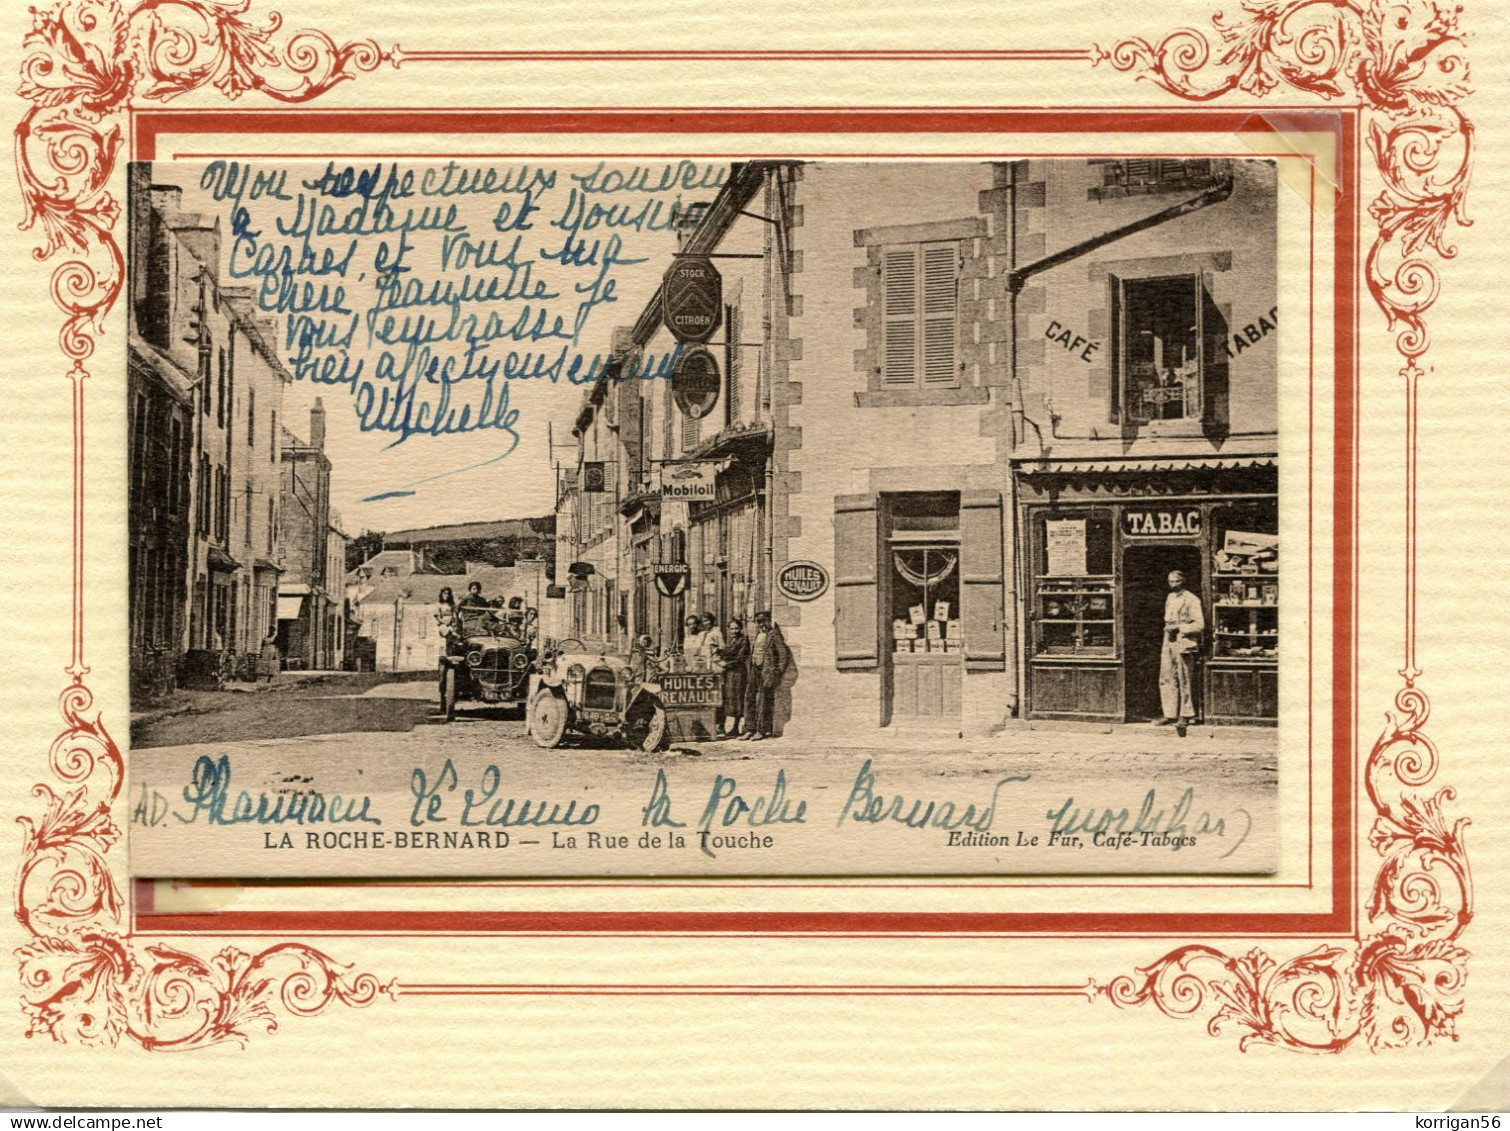 Mon respectueux souvenir
a Madame et Monsieur
et Vous ma
chere Jeannette je
Vous embrasse
bien affectueusement
Michelle
STOCK
CITROËN
Mobiloil
ENERGIC
HUILES
RENAULT
HUILES
RENAULT
CAFÉ
TABAC
TABAC
AD. Pharmacie la Roche Bernard Morbihan)
LA ROCHE-BERNARD — La Rue de la Touche
Edition Le Fur, Café-Tabacs
korrigan56